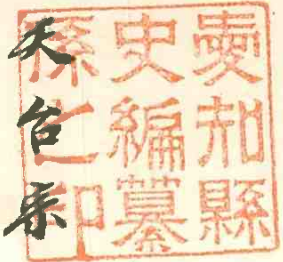 愛知縣
史編纂
係之印
天台宗